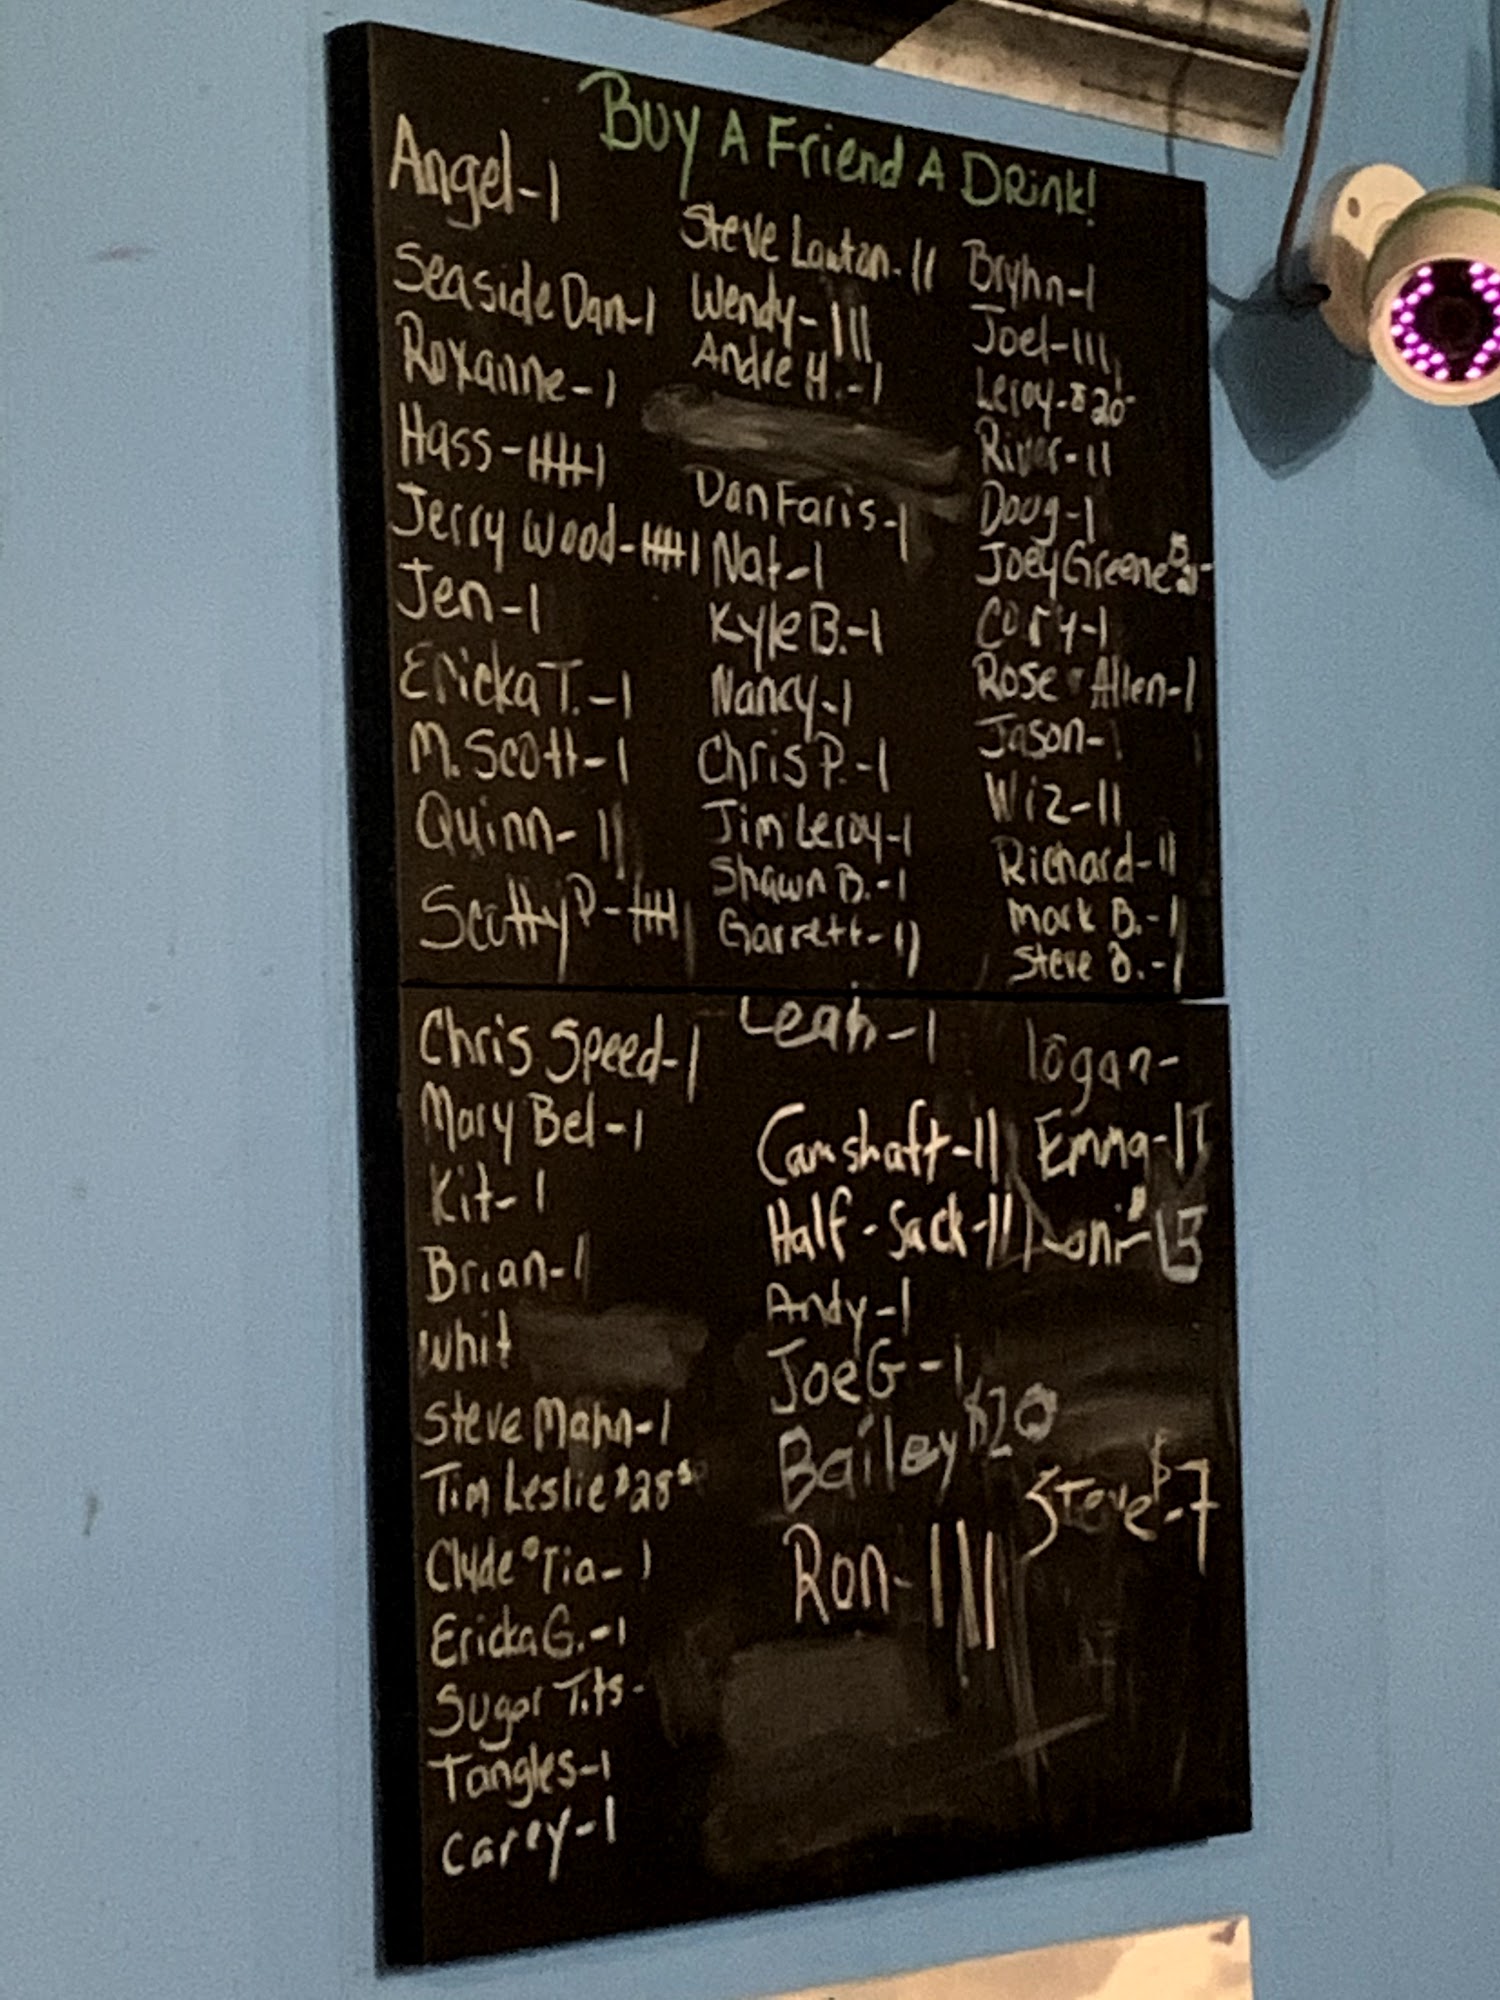 Buy A Friend A Drink!
Angel-1
Seaside Dan-1
Roxanne-1
Hass-
Jerry Wood-
Jen-1
Ericka T.-1
M. Scott-1
Quinn-11
Scotty P-
Steve Lawton-11
Wendy-111
Andre H.-1
Dan Faris-1
Nat-1
Kyle B.-1
Nancy-1
Chris P.-1
Jim Leroy-1
Shawn B.-1
Garrett-11
Bryhn-1
Joel-111
Leroy-$20
River-11
Doug-1
Joey Greene
Cory-1
Rose Allen-1
Jason-1
Wiz-11
Richard-11
Mark B.-1
Steve B.-1
Chris Speed-1
Mary Bel-1
Kit-1
Brian-1
Whit
Steve Mahn-1
Tim Leslie $28
Clyde Tia-1
Ericka G.-1
Sugar Tits-
Tangles-1
Carey-1
Leah-1
Camshaft-11
Half-Sack-111
Andy-1
Joe G-1
Bailey $20
Ron-111
Logan-
Emma-
Steve $-7